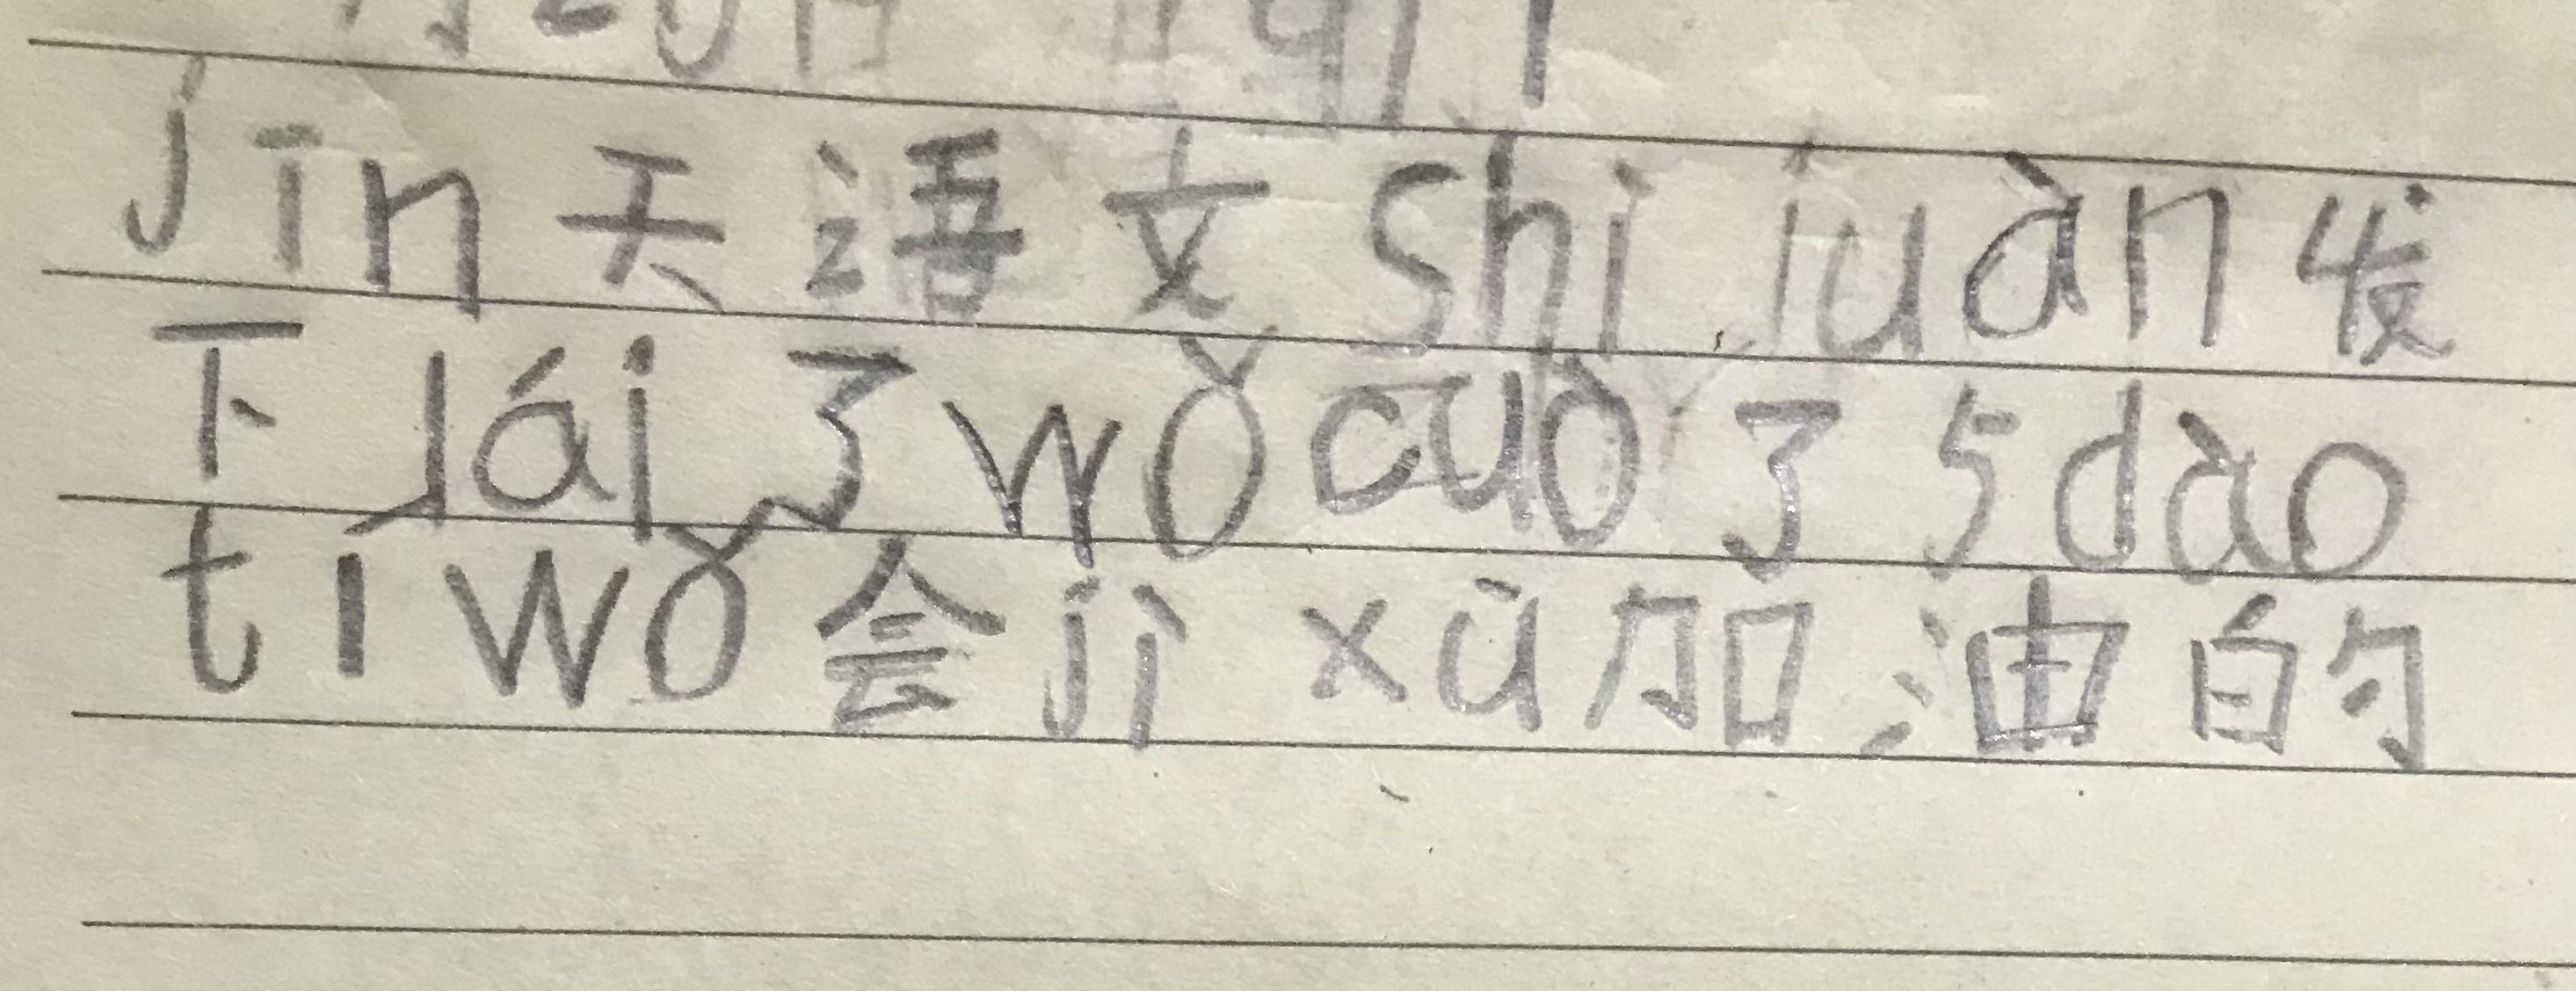 jīn天语文shi juàn发
下lái了wǒ cuò了5dào
tí wǒ会jì xù加油的